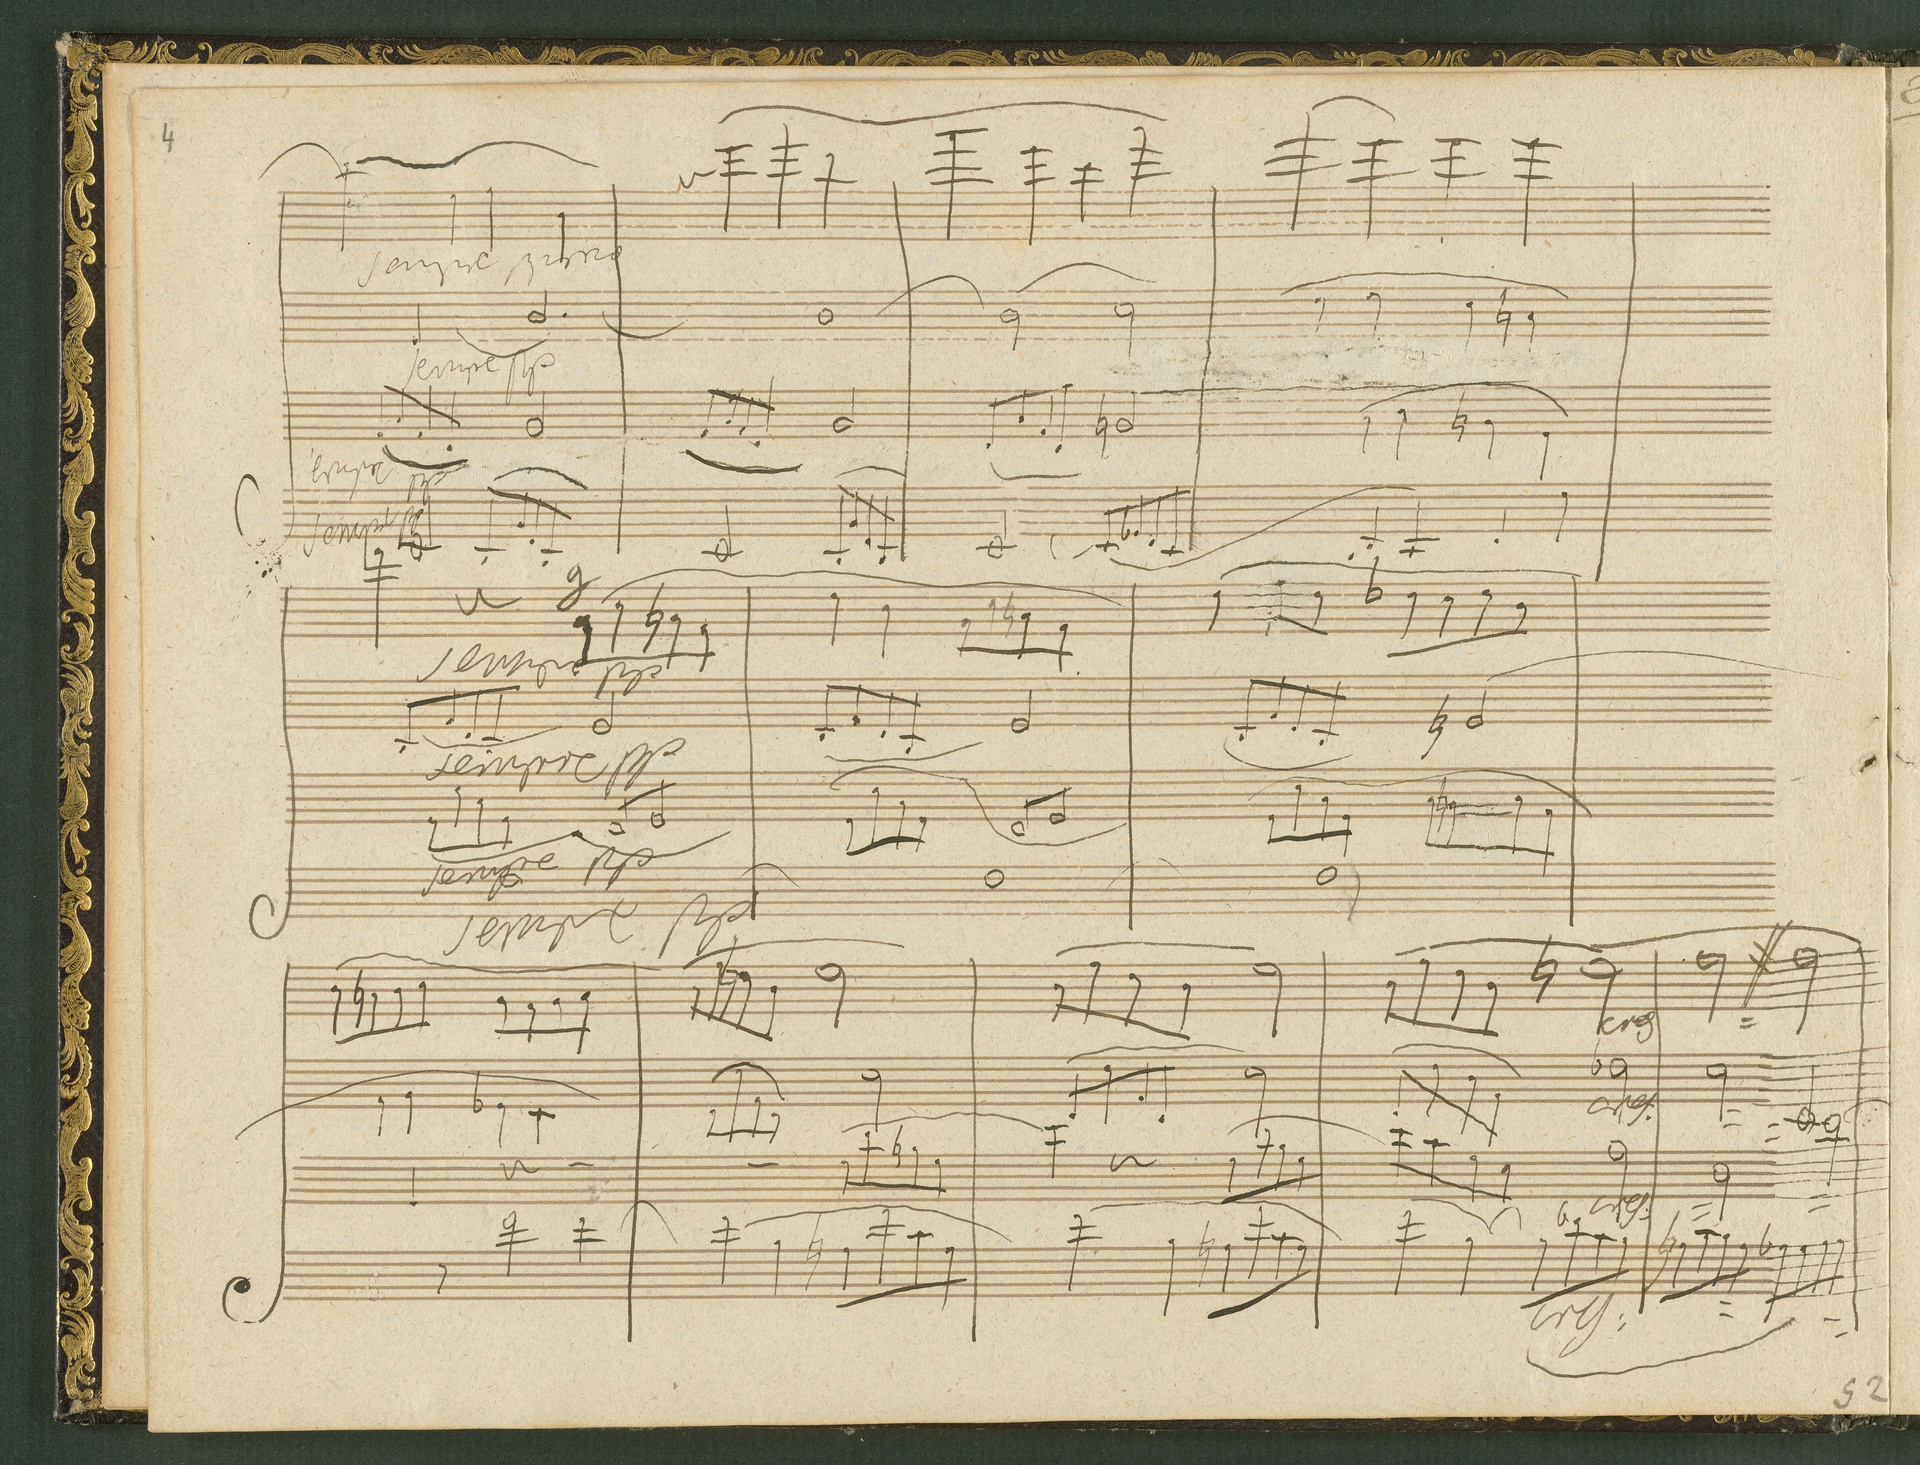 4
sempre piano
sempre pp
sempre pp
sempre pp
sempre pp
sempre pp
sempre pp
sempre pp
cresc
cresc:
cresc:
cresc:
52